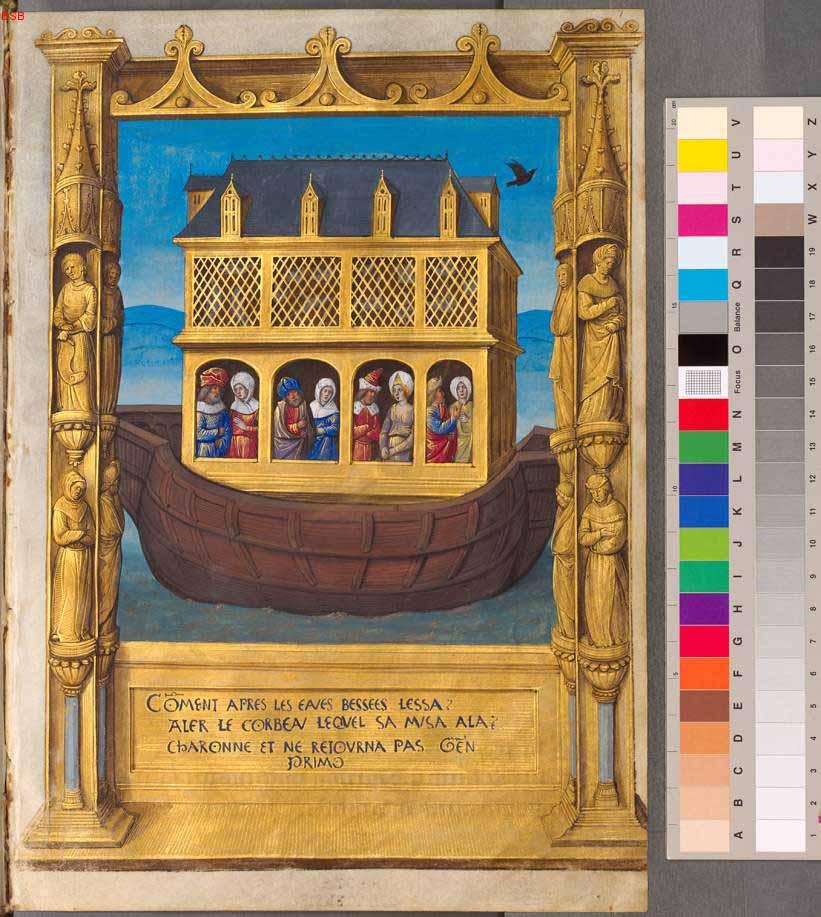 BSB
CŌMENT APRES LES EAVES BESSEES LESSA?
ALER LE CORBEAV LEQVEL SA MVSA ALA?
CHARONNE ET NE RETOVRNA PAS GĒN
PRIMO
cm
20
15
10
5
V
U
T
S
R
Q
Balance
O
Focus
N
M
L
K
J
I
H
G
F
E
D
C
B
A
Z
Y
X
W
19
18
17
16
15
14
13
12
11
10
9
8
7
6
5
4
3
2
1